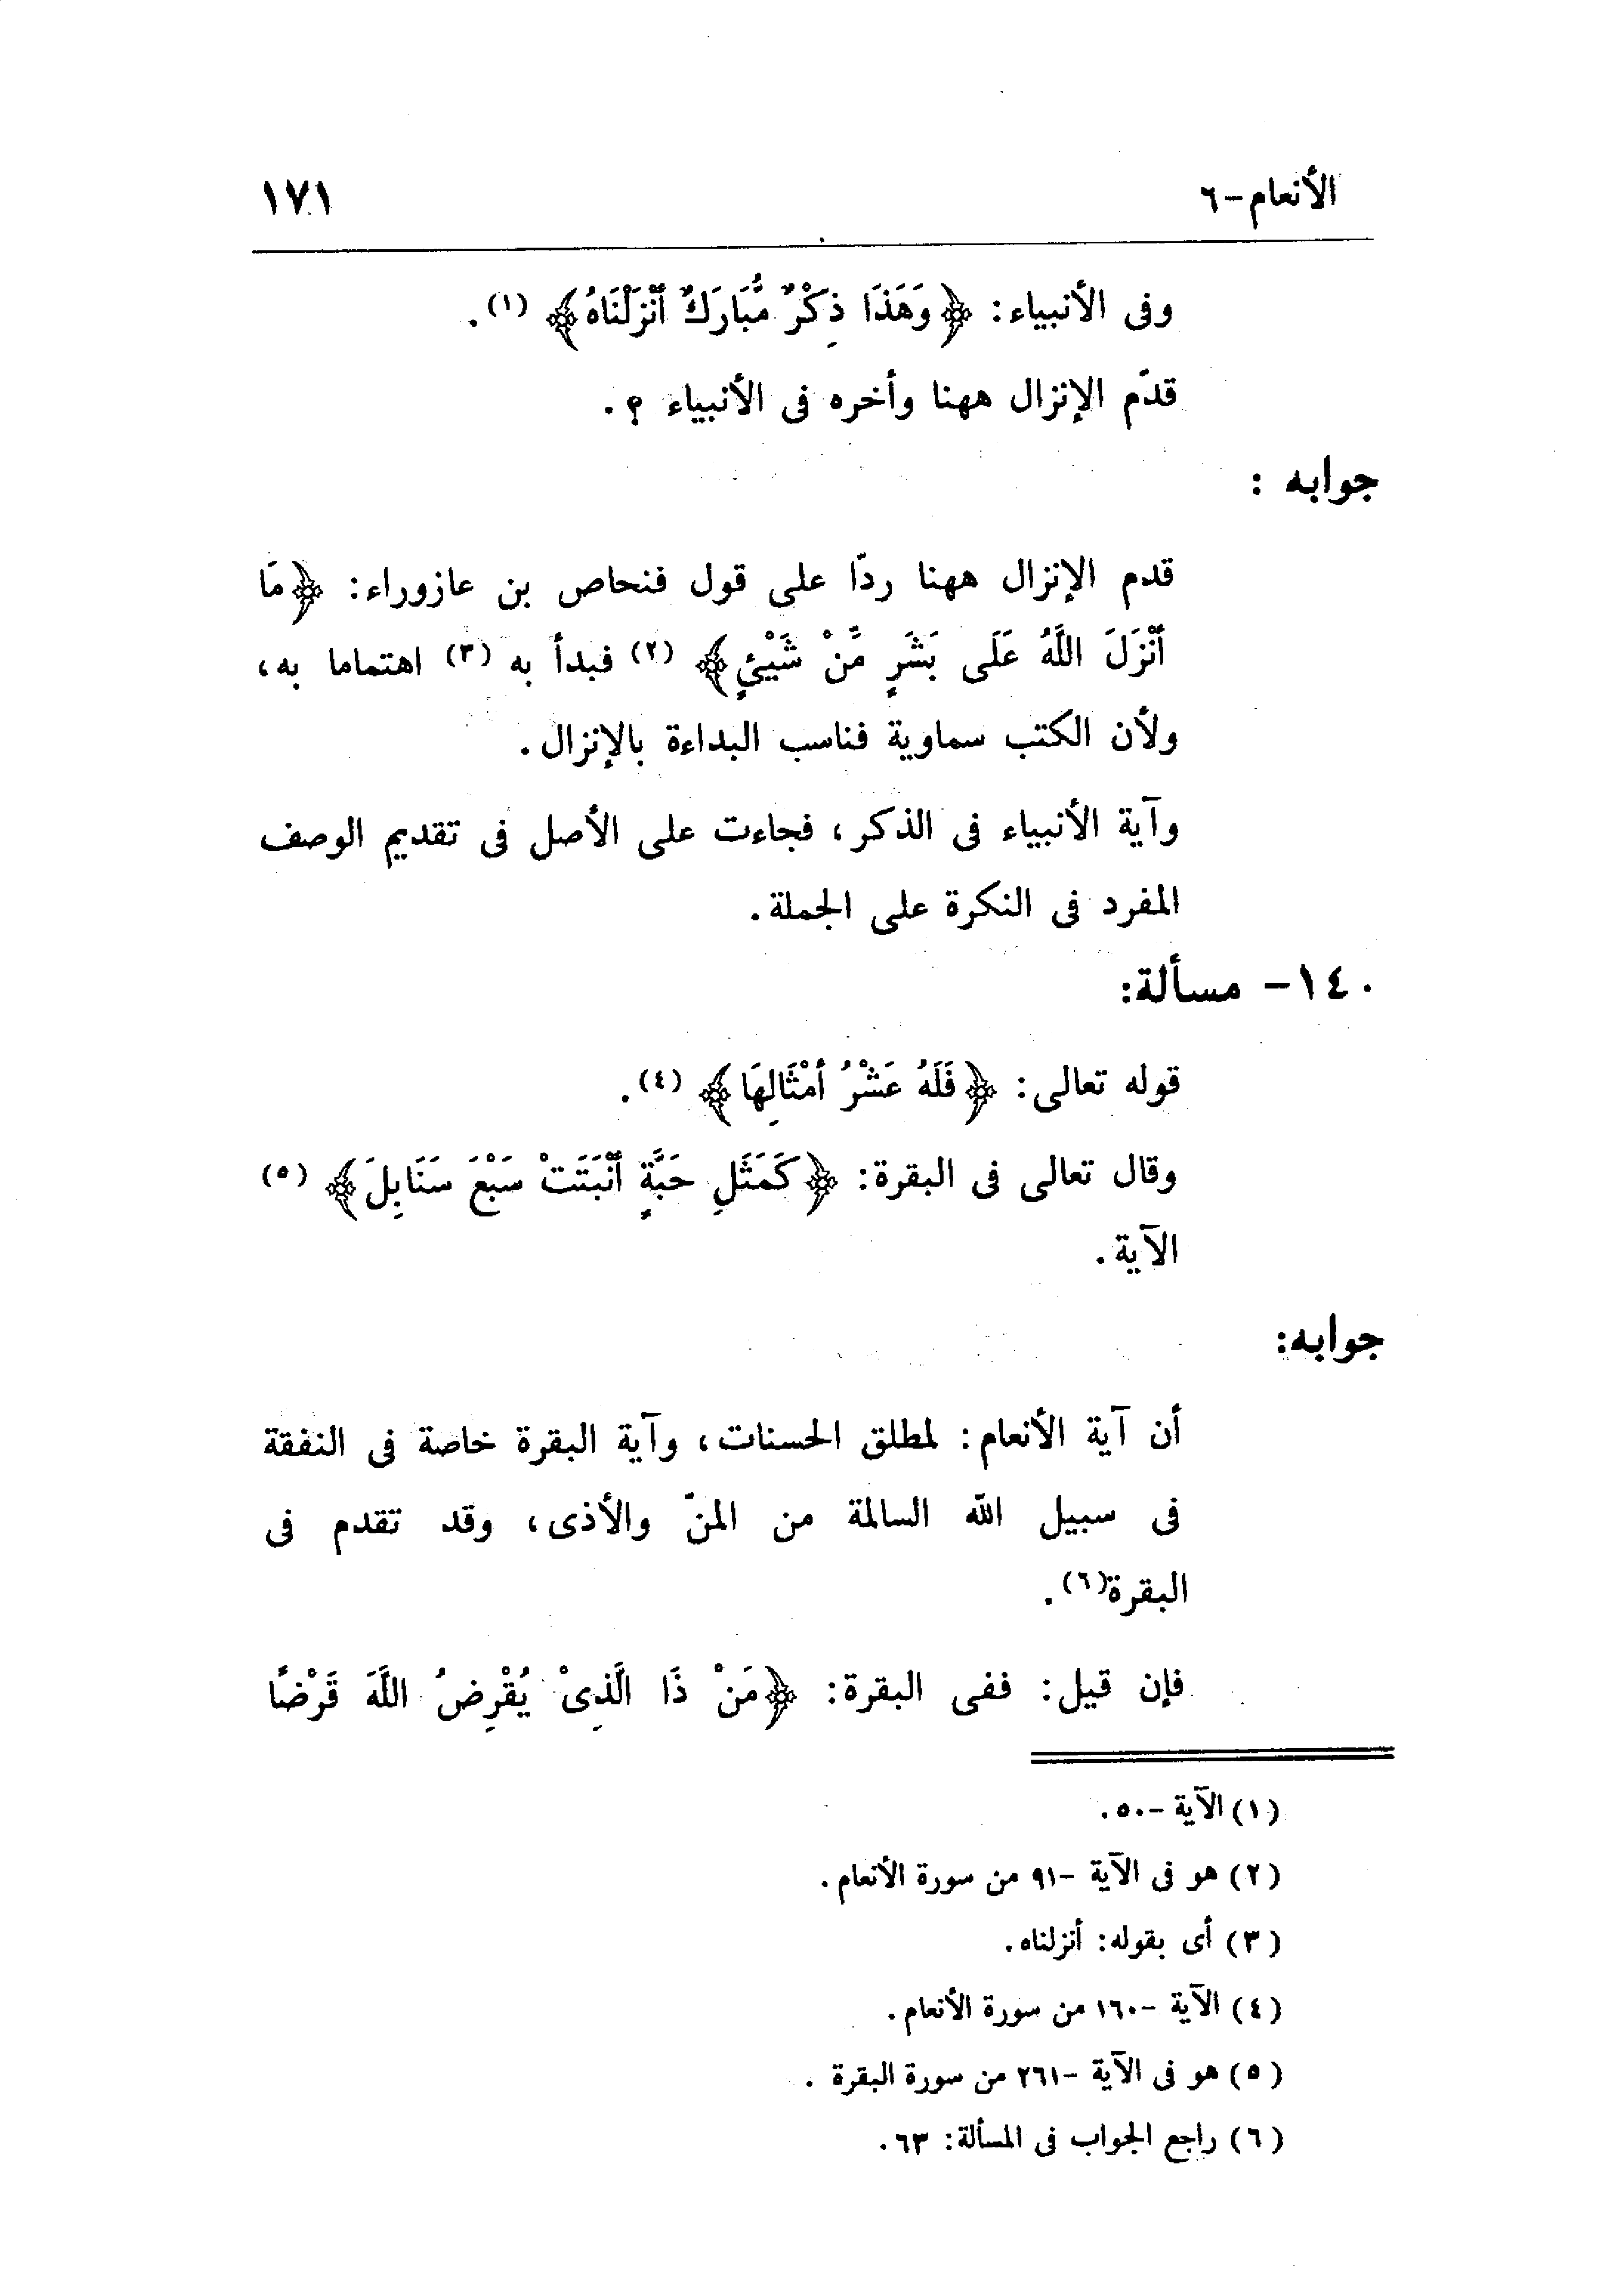 الأنعام-٦ ١٧١
وفى الأنبياء: ﴿وَهَذَا ذِكْرٌ مُّبَارَكٌ أَنْزَلْنَاهُ﴾ (١).
قدّم الإنزال ههنا وأخره فى الأنبياء ؟.
جوابه :
قدم الإنزال ههنا ردّا على قول فنحاص بن عازوراء: ﴿مَا
أَنْزَلَ اللَّهُ عَلَى بَشَرٍ مِّنْ شَيْئٍ﴾ (٢) فبدأ به (٣) اهتماما به،
ولأن الكتب سماوية فناسب البداءة بالإنزال.
وآية الأنبياء فى الذكر، فجاءت على الأصل فى تقديم الوصف
المفرد فى النكرة على الجملة.
١٤٠- مسألة:
قوله تعالى: ﴿فَلَهُ عَشْرُ أَمْثَالِهَا﴾ (٤).
وقال تعالى فى البقرة: ﴿كَمَثَلِ حَبَّةٍ أَنْبَتَتْ سَبْعَ سَنَابِلَ﴾ (٥)
الآية.
جوابه:
أن آية الأنعام: لمطلق الحسنات، وآية البقرة خاصة فى النفقة
فى سبيل الله السالمة من المنّ والأذى، وقد تقدم فى
البقرة(٦).
فإن قيل: ففى البقرة: ﴿مَنْ ذَا الَّذِىْ يُقْرِضُ اللَّهَ قَرْضًا
(١) الآية -٥٠.
(٢) هو فى الآية -٩١ من سورة الأنعام.
(٣) أى بقوله: أنزلناه.
(٤) الآية -١٦٠ من سورة الأنعام.
(٥) هو فى الآية -٢٦١ من سورة البقرة .
(٦) راجع الجواب فى المسألة: ٦٣.